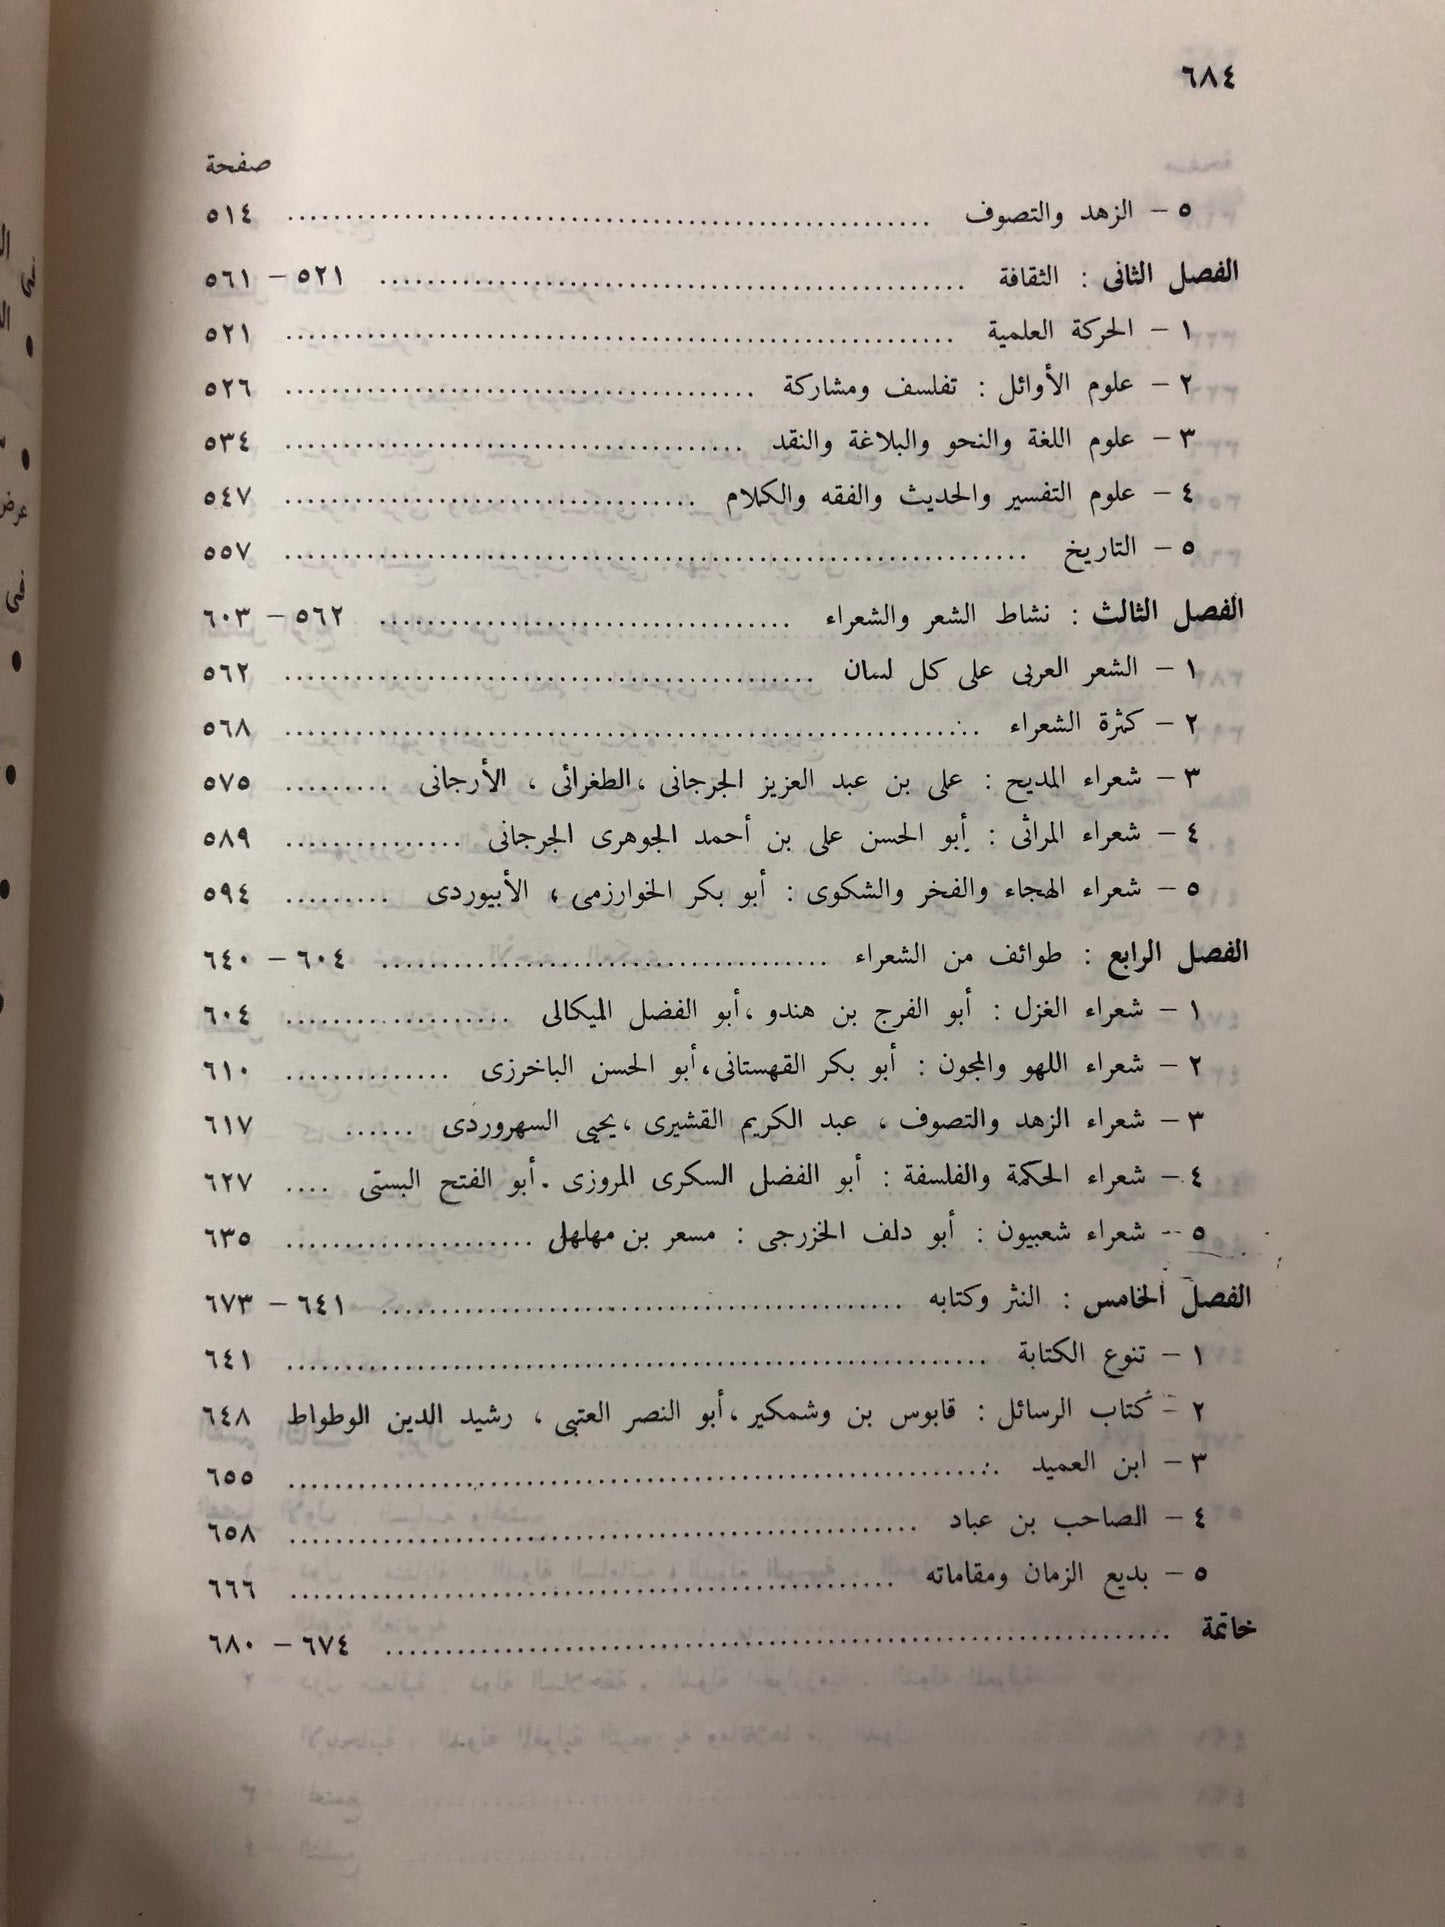 ٦٨٤
صفحة
٥ – الزهد والتصوف ................ ٥١٤
الفصل الثانى : الثقافة ................ ٥٢١ – ٥٦١
١ – الحركة العلمية ................ ٥٢١
٢ – علوم الأوائل : تفلسف ومشاركة ................ ٥٢٦
٣ – علوم اللغة والنحو والبلاغة والنقد ................ ٥٣٤
٤ – علوم التفسير والحديث والفقه والكلام ................ ٥٤٧
٥ – التاريخ ................ ٥٥٧
الفصل الثالث : نشاط الشعر والشعراء ................ ٥٦٢ – ٦٠٣
١ – الشعر العربى على كل لسان ................ ٥٦٢
٢ – كثرة الشعراء ................ ٥٦٨
٣ – شعراء المديح : على بن عبد العزيز الجرجانى ، الطغرائى ، الأرجانى ......... ٥٧٥
٤ – شعراء المراثى : أبو الحسن على بن أحمد الجوهرى الجرجانى ............... ٥٨٩
٥ – شعراء الهجاء والفخر والشكوى : أبو بكر الخوارزمى ، الأبيوردى ......... ٥٩٤
الفصل الرابع : طوائف من الشعراء ................ ٦٠٤ – ٦٤٠
١ – شعراء الغزل : أبو الفرج بن هندو ، أبو الفضل الميكالى ................ ٦٠٤
٢ – شعراء اللهو والمجون : أبو بكر القهستانى ، أبو الحسن الباخرزى .............. ٦١٠
٣ – شعراء الزهد والتصوف ، عبد الكريم القشيرى ، يحيى السهروردى ...... ٦١٧
٤ – شعراء الحكمة والفلسفة : أبو الفضل السكرى المروزى . أبو الفتح البستى .... ٦٢٧
٥ – شعراء شعبيون : أبو دلف الخزرجى : مسعر بن مهلهل ................ ٦٣٥
الفصل الخامس : النثر وكتابه ................ ٦٤١ – ٦٧٣
١ – تنوع الكتابة ................ ٦٤١
٢ – كتاب الرسائل : قابوس بن وشمكير ، أبو النصر العتبى ، رشيد الدين الوطواط ٦٤٨
٣ – ابن العميد ................ ٦٥٥
٤ – الصاحب بن عباد ................ ٦٥٨
٥ – بديع الزمان ومقاماته ................ ٦٦٦
خاتمة ................ ٦٧٤ – ٦٨٠